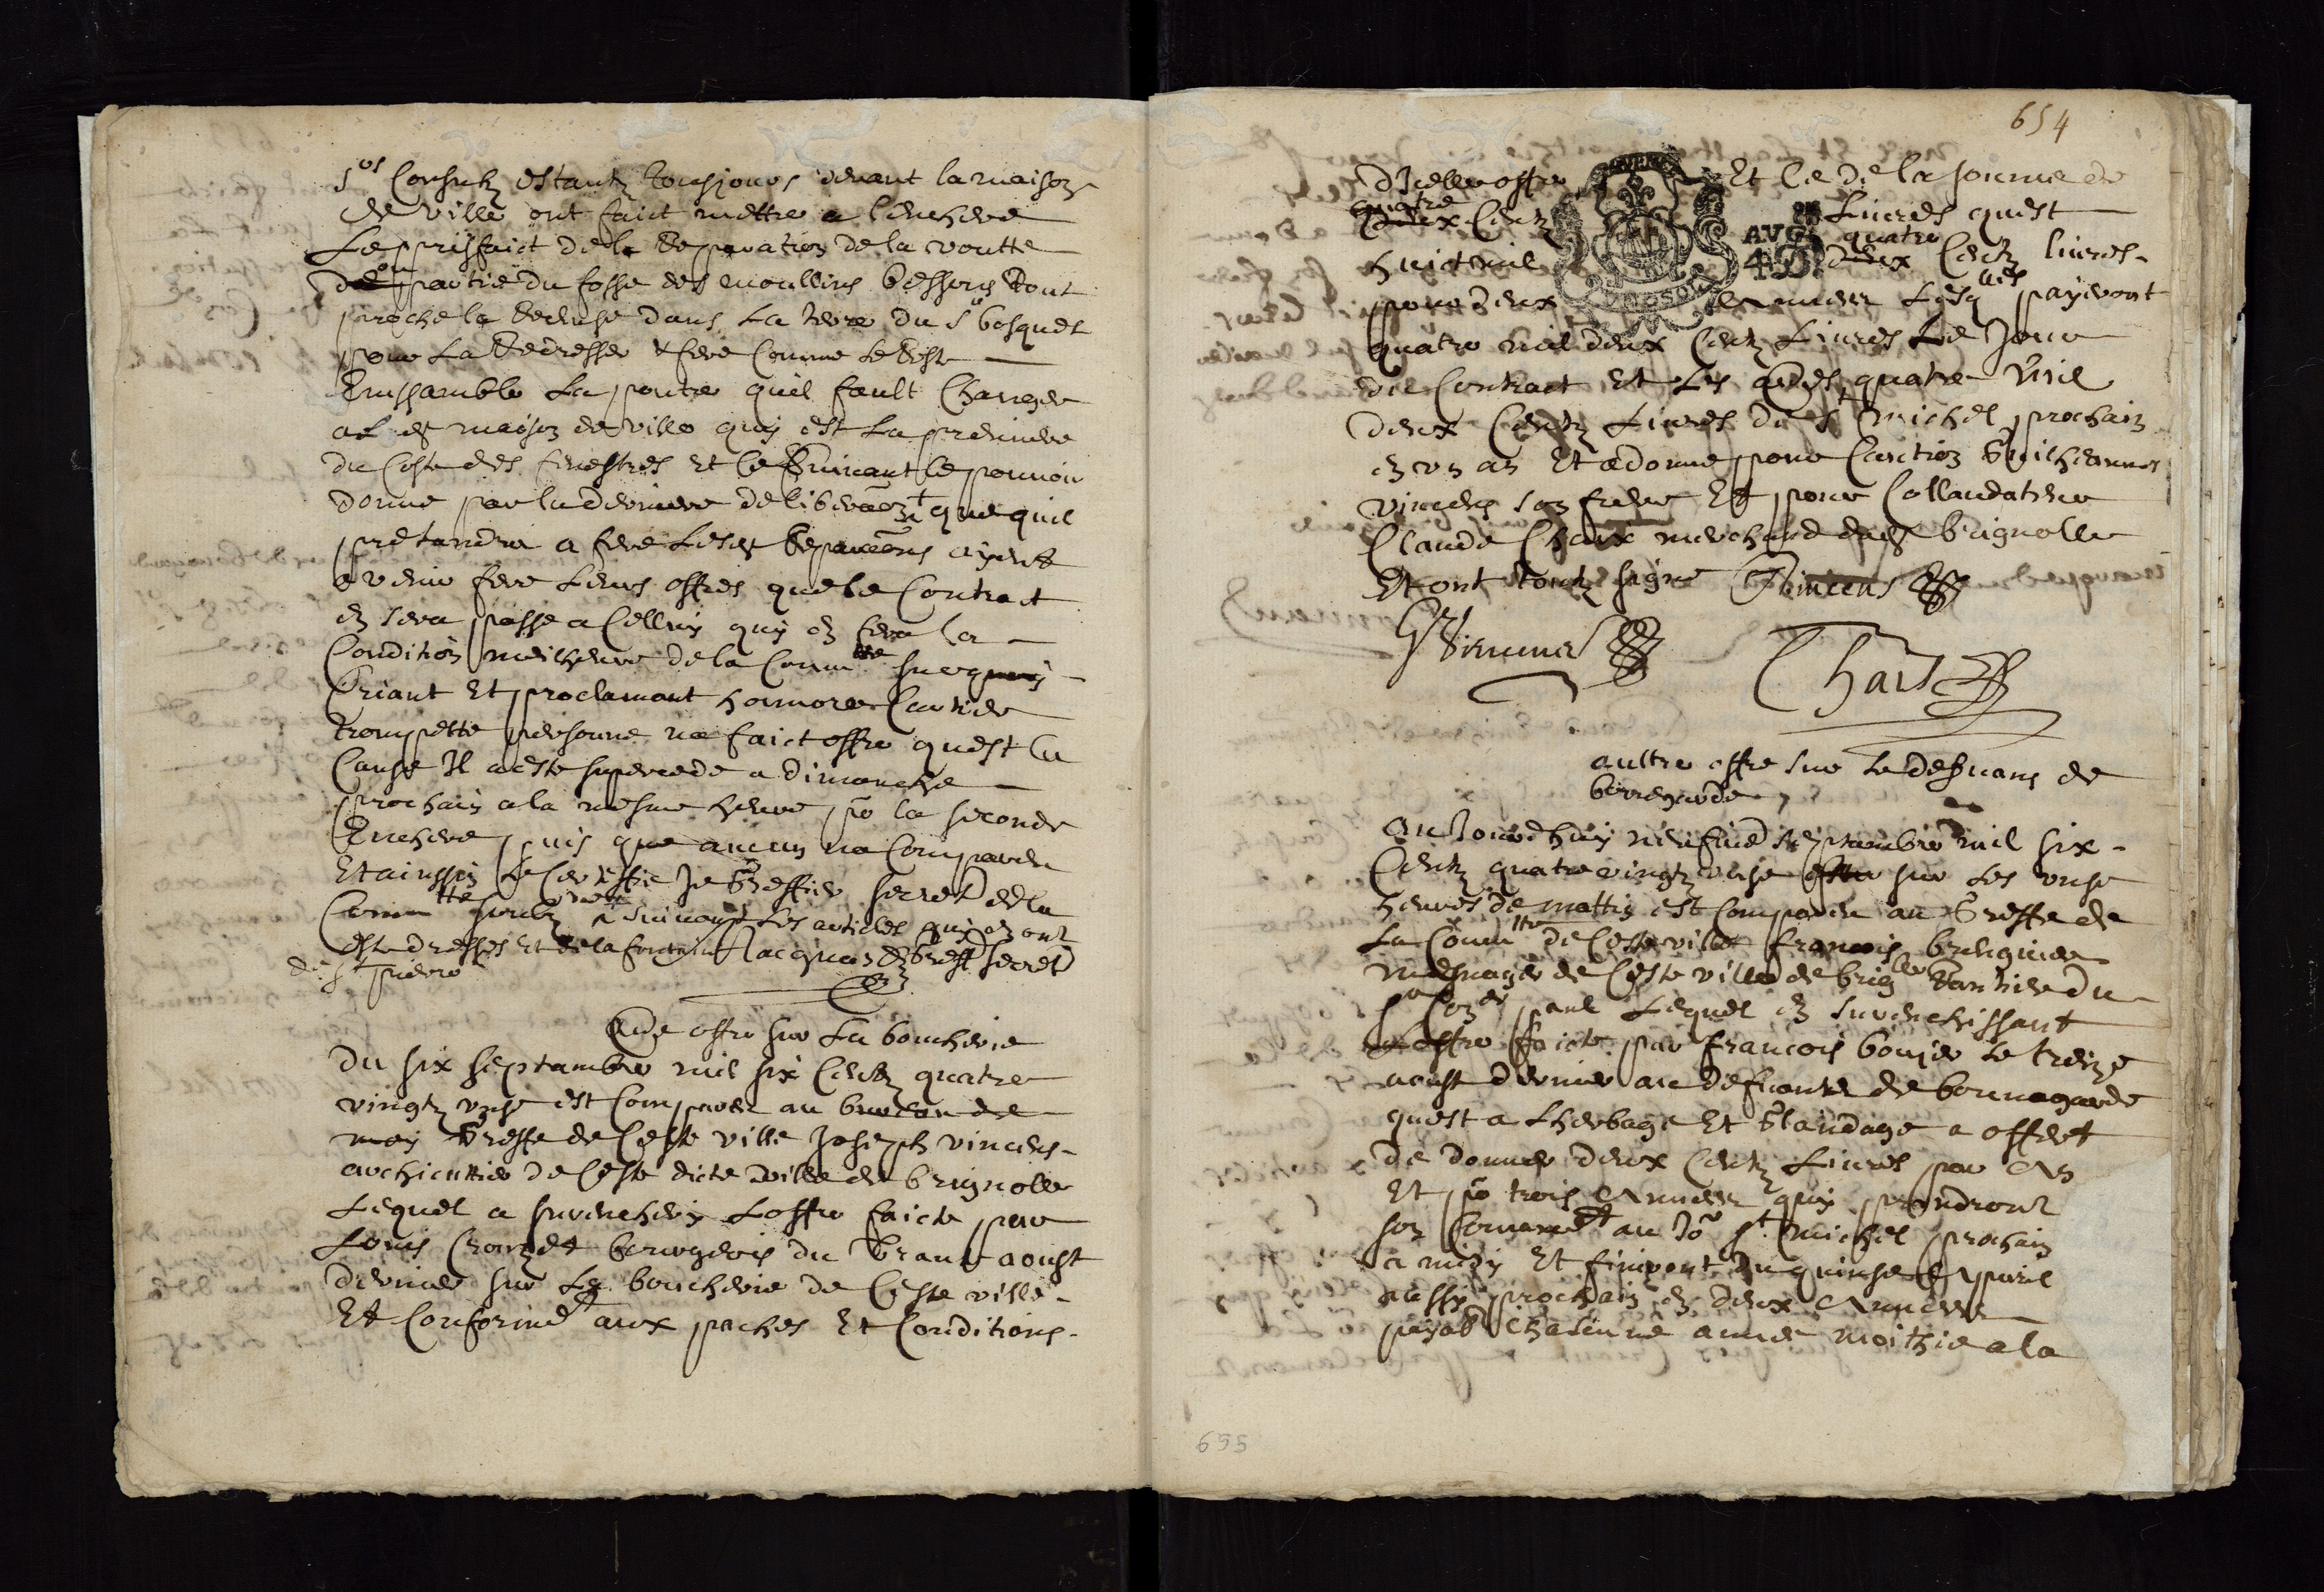 srs Consulz estantz tousjours devant la maison
de ville ont faict mettre a lenchere
Le prisfaict de la reparation de la voutte
ou partie du fosse des moullins bessons tout
proche la recluse dans La terre du sr bosquet
pour La redresser & fere Comme
Enssamble La poutre quil fault Changer
a maison de ville quy est La premiere
du Coste des fenestres et Ce Suivant le pouvoir
donne par la derniere deliberaon + que quil
pretandra a fere Lesd reparaons ayent
a venir fere Leurs offres que le Contract
en sera passe a Celluy quy en fera la
Condition meilheure de la Commtte sur quoy
Criant Et proclamant honnore Cartier
trompette personne na faict offre quest la
Cause Il a este supercede a dimanche
prochain a la mesme heure po la seconde
Enchere puis que aucun na Comparu
Et ainssin Le Certiffie Je Greffier secret de la
Commtte soubz + suivant Les articles quy en ont
este dresses Et de la fontaine Jacquen Greff secret
de st pierre
Aude offre sur La boucherie
Du six septambre mil six Centz quatre
vingtz unse est Comparu au bureau de
moy Greffe de Ceste ville Joseph vincens
archieuttier de Ceste dicte ville de brignolle
Lequel a surencheri Loffre faicte par
Louis Crouzet bourgeois du trante aoust
dernier sur La boucherie de Ceste ville
Et Conformet aux paches Et Conditions
654
dicelle offre Et Ce de la somme de
quatre
deux Centz Livres quest
quatre
huict mil deux Centz livres
pour deux Annees Lesqlles payeront
quatre mil deux Centz Livres Le Jour
du Contract Et Les aues quatre mil
deux Centz Livres du st michel prochain
en un an Et a donne pour Caution Guilheaumes
vincens son frere Et pour Collaudateur
Claude Chaix merchand dud brignolle
Et ont toutz signe Vincens
G Vincens
Chais
aultre offre sur Le defuans de
bonnegarde
AVG
4 D
Au Jourdhuy neufiesme septambre mil six
Centz quatre vingtz unse sur Les unse
heures de mattin est Comparu au Greffe de
La Commtte de Ceste ville francois
mesnager de Ceste ville de brignlle Rantier du
sr paul Lequel en surencherissant
Loffre faicte par francois boujer Le treize
aoust dernier au defuans de bonnegarde
quest a Lherbage Et Glandage a offert
de donner deux Centz Livres par An
Et po trois Annees quy prandront
son Comancet au Jo st michel prochain
a midy Et finiront Au quinse Apvril
aussy prochain en deux Annees
payab Chascune annee moithie a la
655